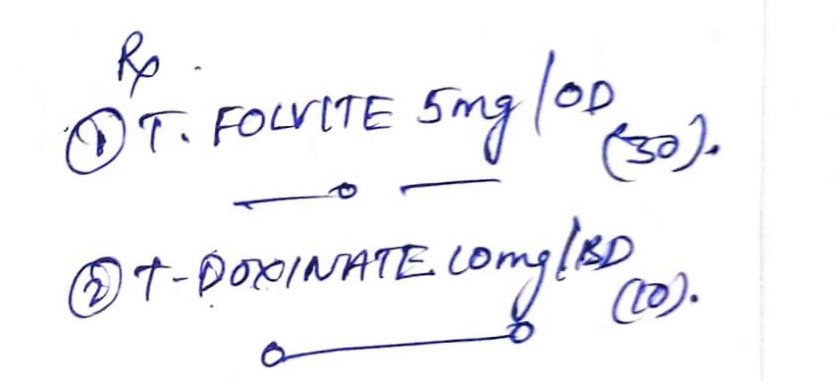 Rx.
① T. FOLVITE 5mg/OD (30).
② T-DOXINATE 10mg/BD (10).